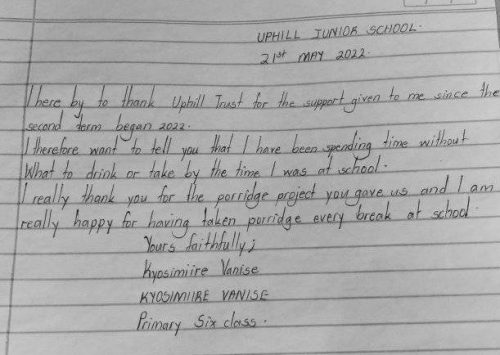 UPHILL JUNIOR SCHOOL.
21st MAY 2022.
I here by to thank Uphill Trust for the support given to me since the
second term began 2022.
I therefore want to tell you that I have been spending time without
What to drink or take by the time I was at school.
I really thank you for the porridge project you gave us and I am
really happy for having taken porridge every break at school.
Yours faithfully;
Kyosimiire Vanise
KYOSIMIIRE VANISE
Primary Six class.